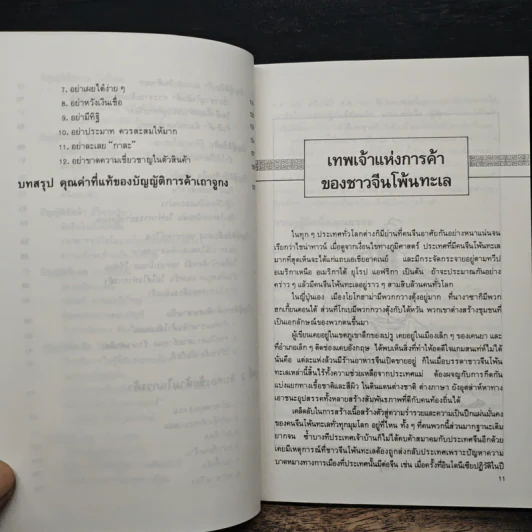 7. อย่าเผยไต๋ง่าย ๆ
8. อย่าหวังเงินเชื่อ
9. อย่ามีทิฐิ
10. อย่าประมาท ควรสะสมให้มาก
11. อย่าละเลย "กาละ"
12. อย่าขาดความเชี่ยวชาญในตัวสินค้า
บทสรุป คุณค่าที่แท้ของบัญญัติการค้าเถาจูกง
เทพเจ้าแห่งการค้า
ของชาวจีนโพ้นทะเล
ในทุก ๆ ประเทศทั่วโลกต่างก็มีย่านที่คนจีนอาศัยกันอย่างหนาแน่นจน
เรียกว่าไชน่าทาวน์ เมื่อดูจากเงื่อนไขทางภูมิศาสตร์ ประเทศที่มีคนจีนโพ้นทะเล
มากที่สุดเห็นจะได้แก่แถบเอเชียอาคเนย์ และมีกระจัดกระจายอยู่ตามทวีป
อเมริกาเหนือ อเมริกาใต้ ยุโรป แอฟริกา เป็นต้น ถ้าจะประมาณกันอย่าง
คร่าว ๆ แล้วมีคนจีนโพ้นทะเลอยู่ราว ๆ สามสิบล้านคนทั่วโลก
ในญี่ปุ่นเอง เมืองโยโกฮามามีพวกกวางตุ้งอยู่มาก ที่นางาซากิมีพวก
ฮกเกี้ยนตอนใต้ ส่วนที่โกเบมีพวกกวางตุ้งกับไต้หวัน พวกเขาต่างสร้างชุมชนที่
เป็นเอกลักษณ์ของพวกตนขึ้นมา
ผู้เขียนเคยอยู่ในเขตภูเขาลึกของเปรู เคยอยู่ในเมืองเล็ก ๆ ของเคนยา และ
ที่อำเภอเล็ก ๆ ติดช่องแคบอังกฤษ ได้พบเห็นสิ่งที่ทำให้อดตีใจแทบไม่ได้
นั่นคือ แต่ละแห่งล้วนมีร้านอาหารจีนเปิดขายอยู่ ก็ในเมื่อบรรดาชาวจีนโพ้น
ทะเลเหล่านี้สิ้นไร้ทั้งความช่วยเหลือจากประเทศแม่ ต้องผจญกับการกีดกัน
แบ่งแยกทางเชื้อชาติและสีผิว ในดินแดนต่างชาติ ต่างภาษา ยังอุตส่าห์หาทาง
เอาชนะอุปสรรคทั้งหลายสร้างสัมพันธภาพที่ดีกับคนท้องถิ่นได้
เคล็ดลับในการสร้างเนื้อสร้างตัวสู่ความร่ำรวยและความเป็นปึกแผ่นมั่นคง
ของคนจีนโพ้นทะเลทั่วทุกมุมโลก อยู่ที่ไหน ทั้ง ๆ ที่คนพวกนี้ส่วนมากฐานะเดิม
ยากจน ซ้ำบางทีประเทศเจ้าบ้านก็ไม่ได้คบค้าสมาคมกับประเทศจีนอีกด้วย
เคยมีเหตุการณ์ที่ชาวจีนโพ้นทะเลต้องถูกส่งกลับประเทศเพราะปัญหาความ
บาดหมางทางการเมืองที่ประเทศนั้นมีต่อจีน เช่น เมื่อครั้งที่อินโดนีเซียปฏิวัติในปี
11